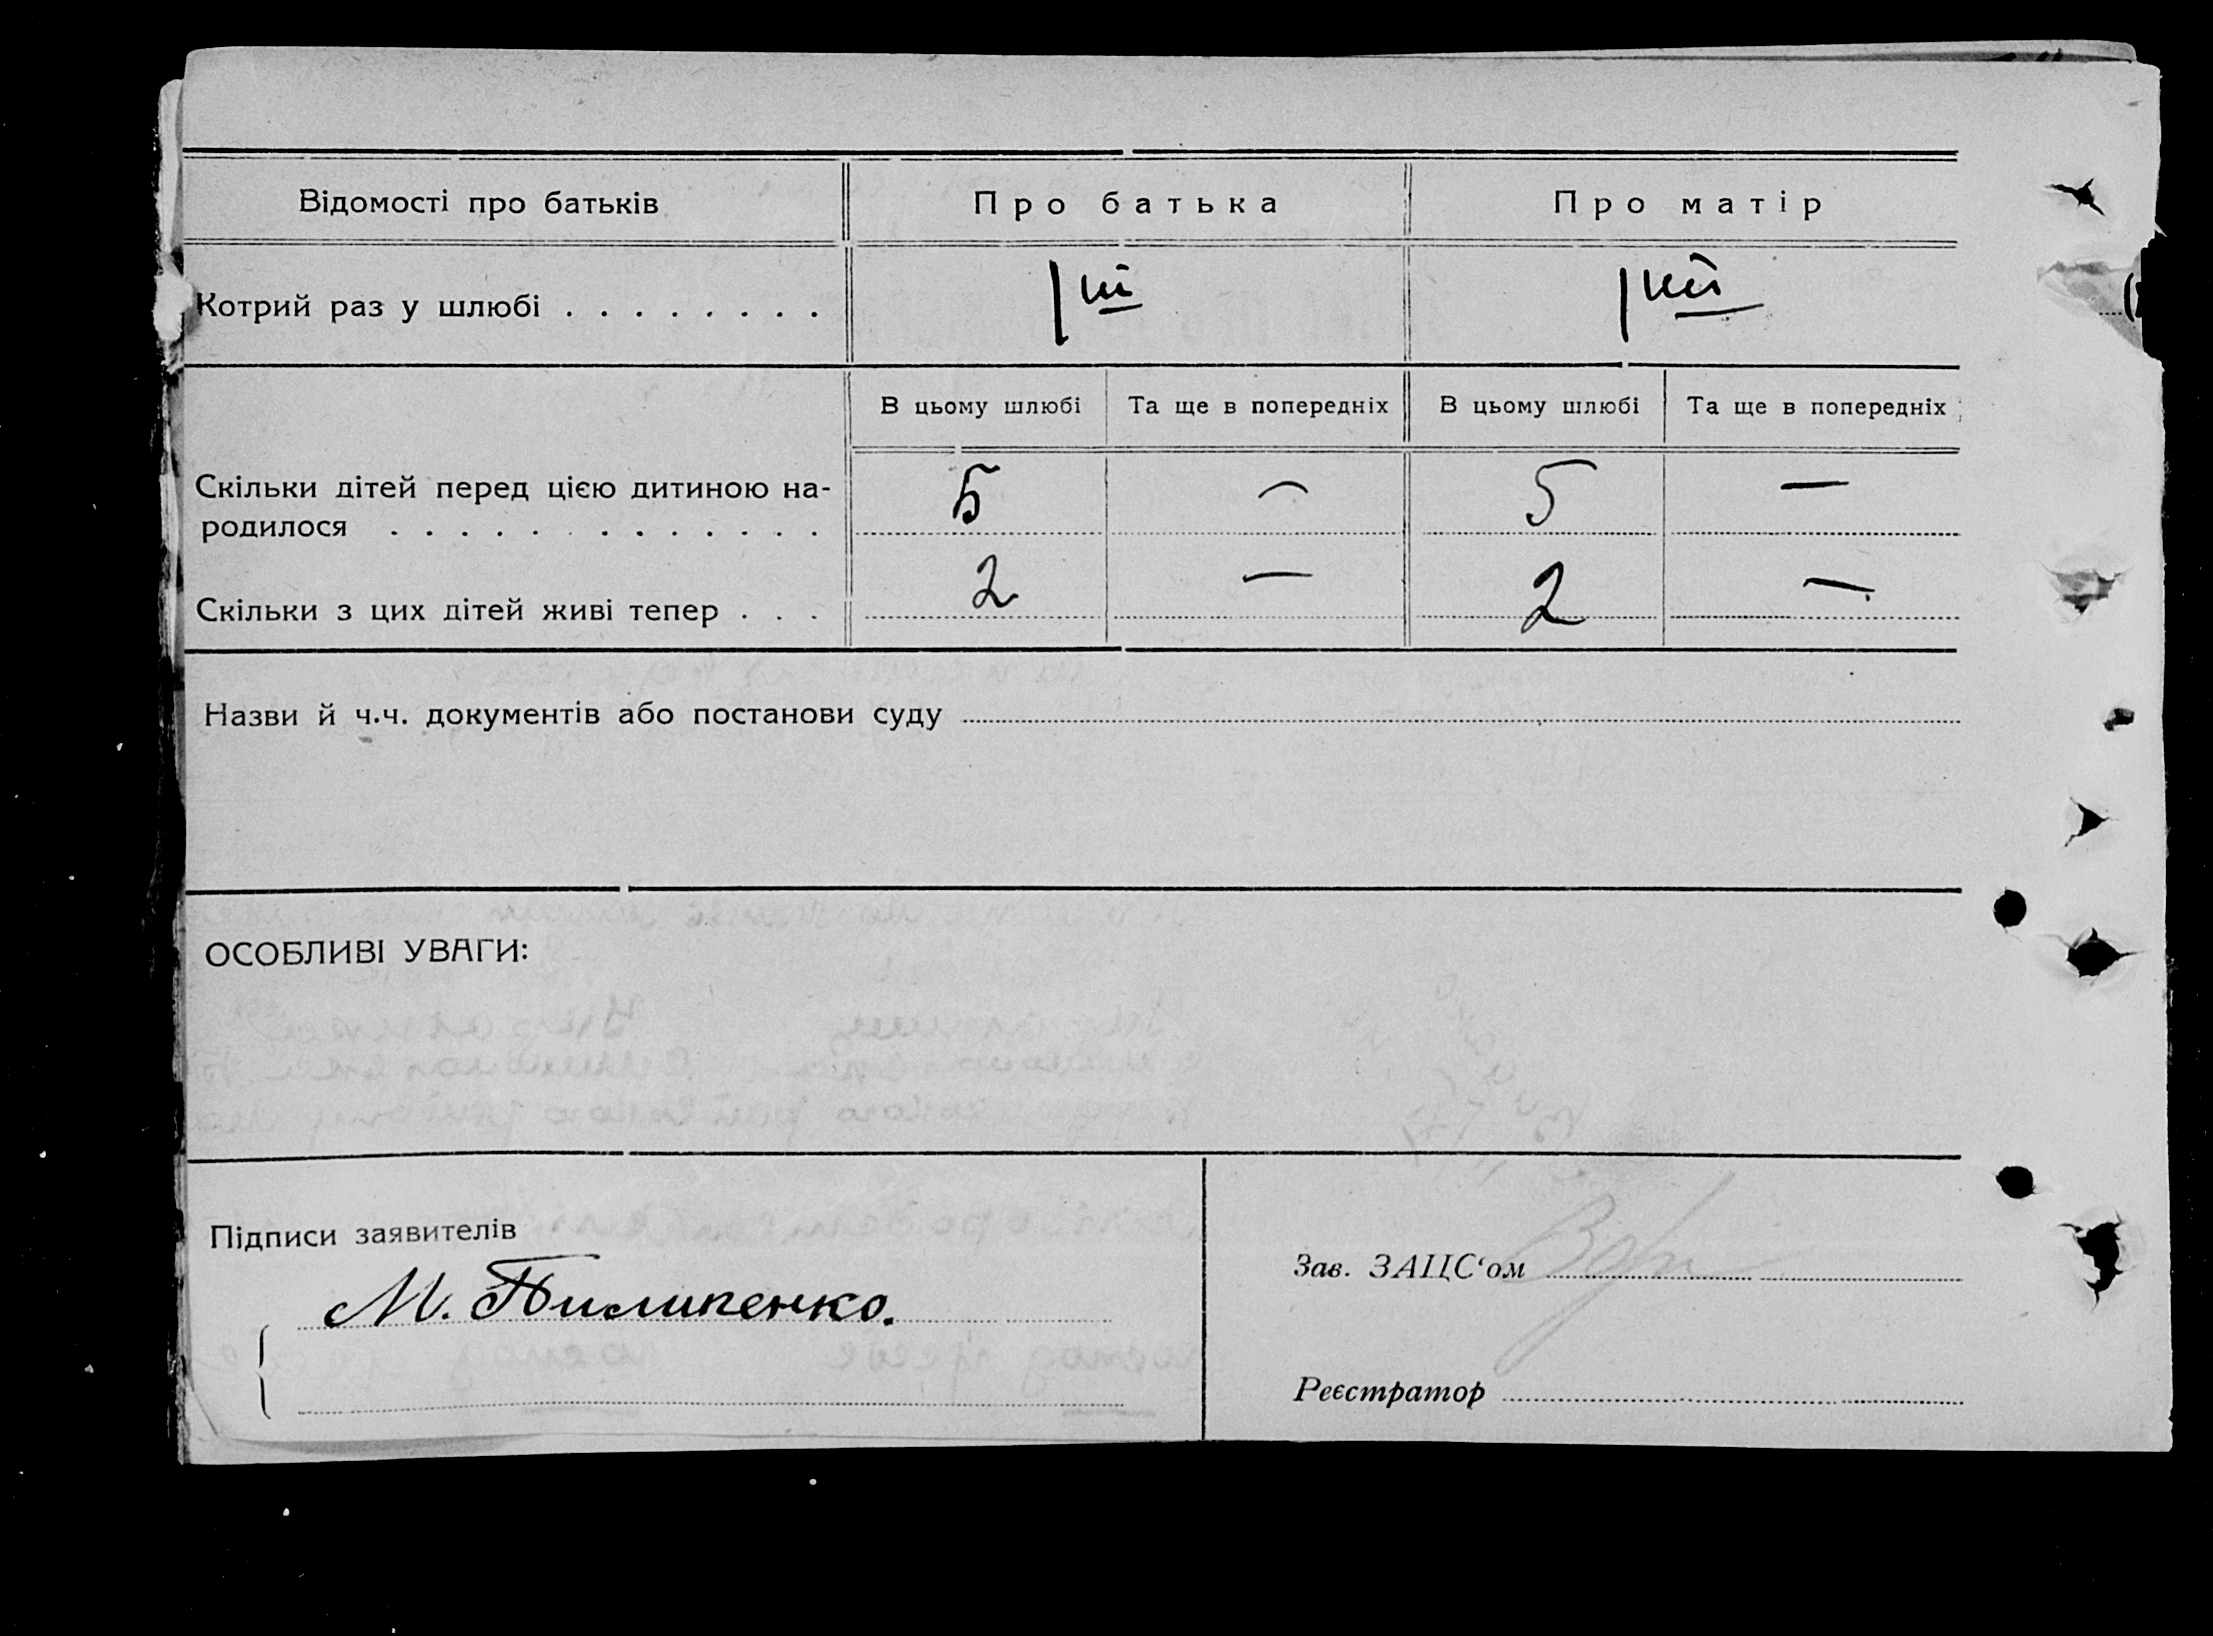 Відомості про батьків Про батька Про матір
Котрий раз у шлюбі . . . . . . . . 1 ий 1 ий
В цьому шлюбі Та ще в попередніх В цьому шлюбі Та ще в попередніх
Скільки дітей перед цією дитиною на-
родилося . . . . . . . . . . . . . 5 — 5 —
Скільки з цих дітей живі тепер . . . 2 — 2 —
Назви й ч.ч. документів або постанови суду
ОСОБЛИВІ УВАГИ:
Підписи заявителів
М. Пилипенко.
Зав. ЗАЦС‘ом
Реєстратор